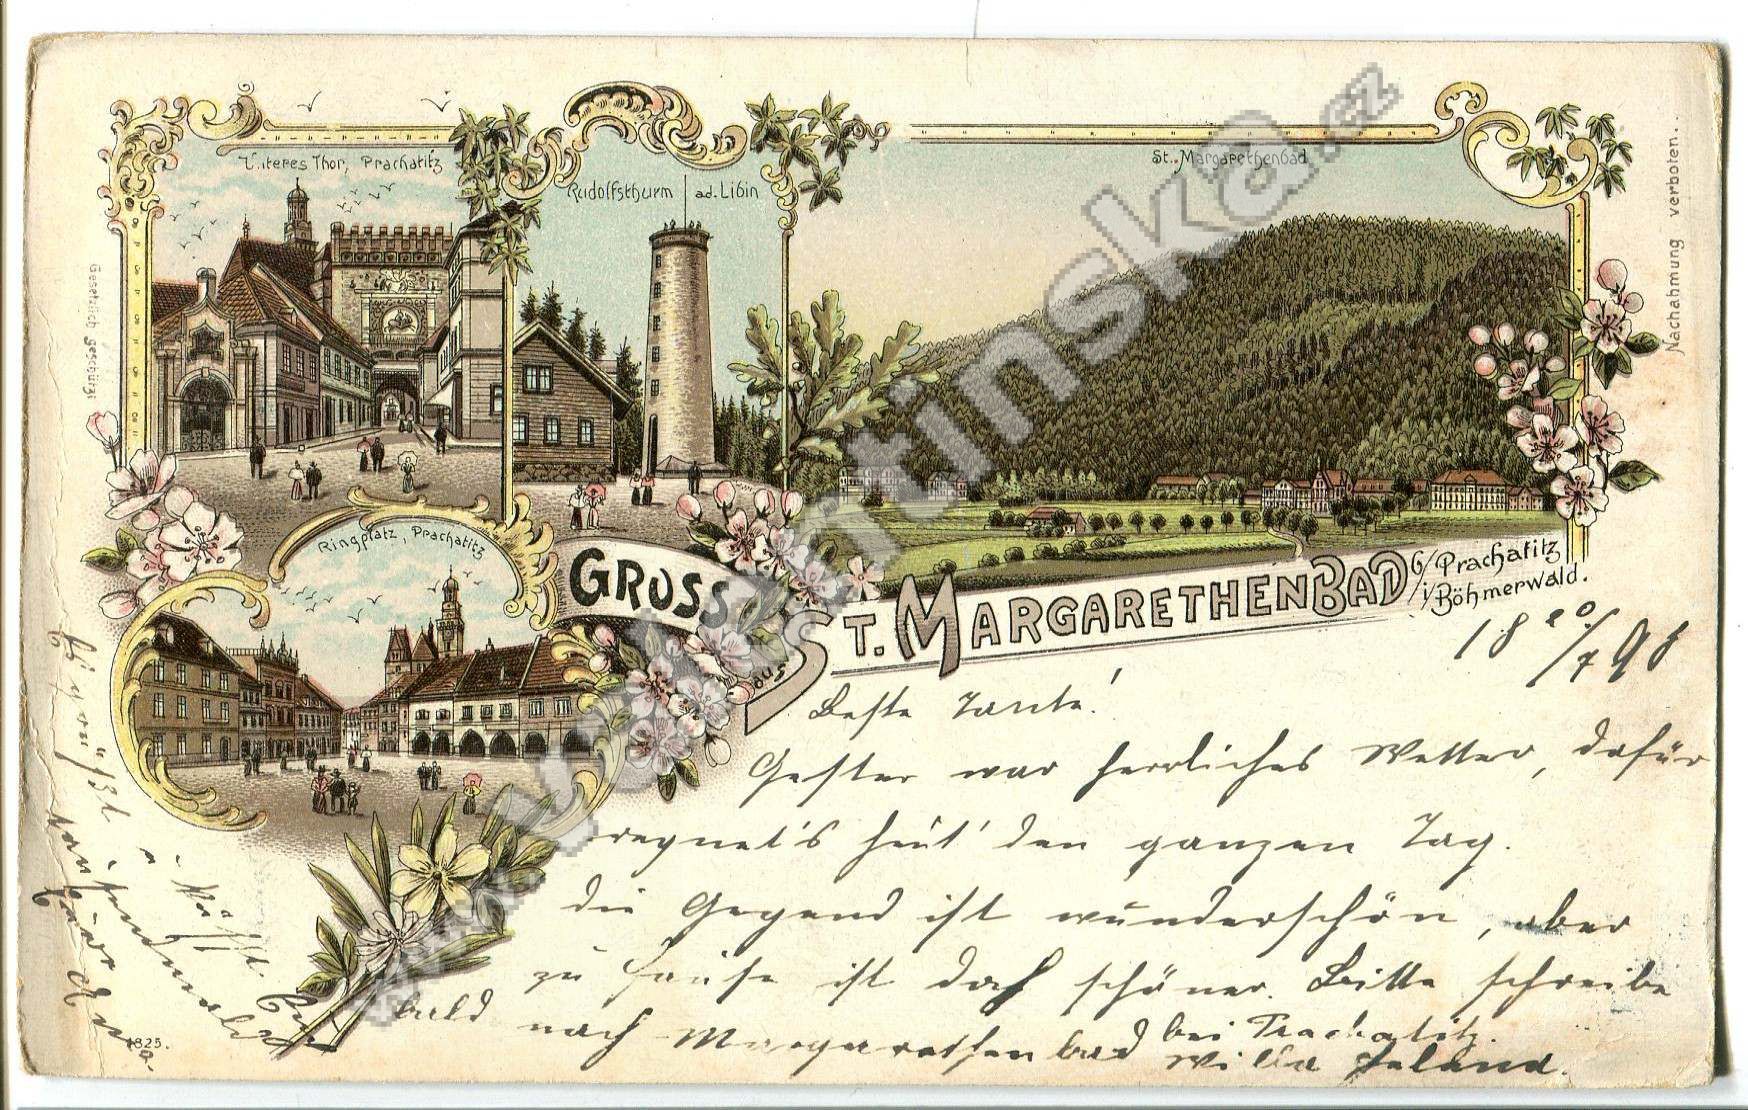 Unteres Thor, Prachatitz
Rudolfsthurm a.d. Libin
St. Margarethenbad
Gesetzlich geschützt
Nachahmung verboten.
Ringplatz, Prachatitz
GRUSS
aus
ST. MARGARETHENBAD b/ Prachatitz
i/ Böhmerwald.
18 20/7 98
Beste Tante!
Gester war herrliches Wetter, dafür
regnet's heut' den ganzen Tag.
die Gegend ist wunderschön, aber
zu Hause ist doch schöner. Bitte schreibe
bald nach Margarethenbad bei Prachatitz.
Willa
Ich grüßt u. küßt
1825.